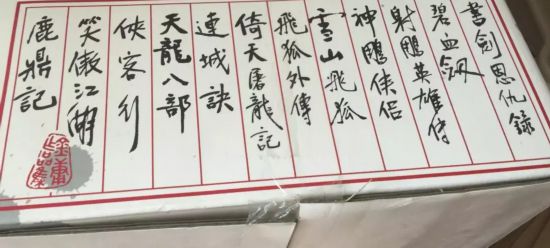 書劍恩仇錄
碧血劍
射鵰英雄傳
神鵰俠侶
雪山飛狐
飛狐外傳
倚天屠龍記
連城訣
天龍八部
俠客行
笑傲江湖
鹿鼎記
金庸作品集